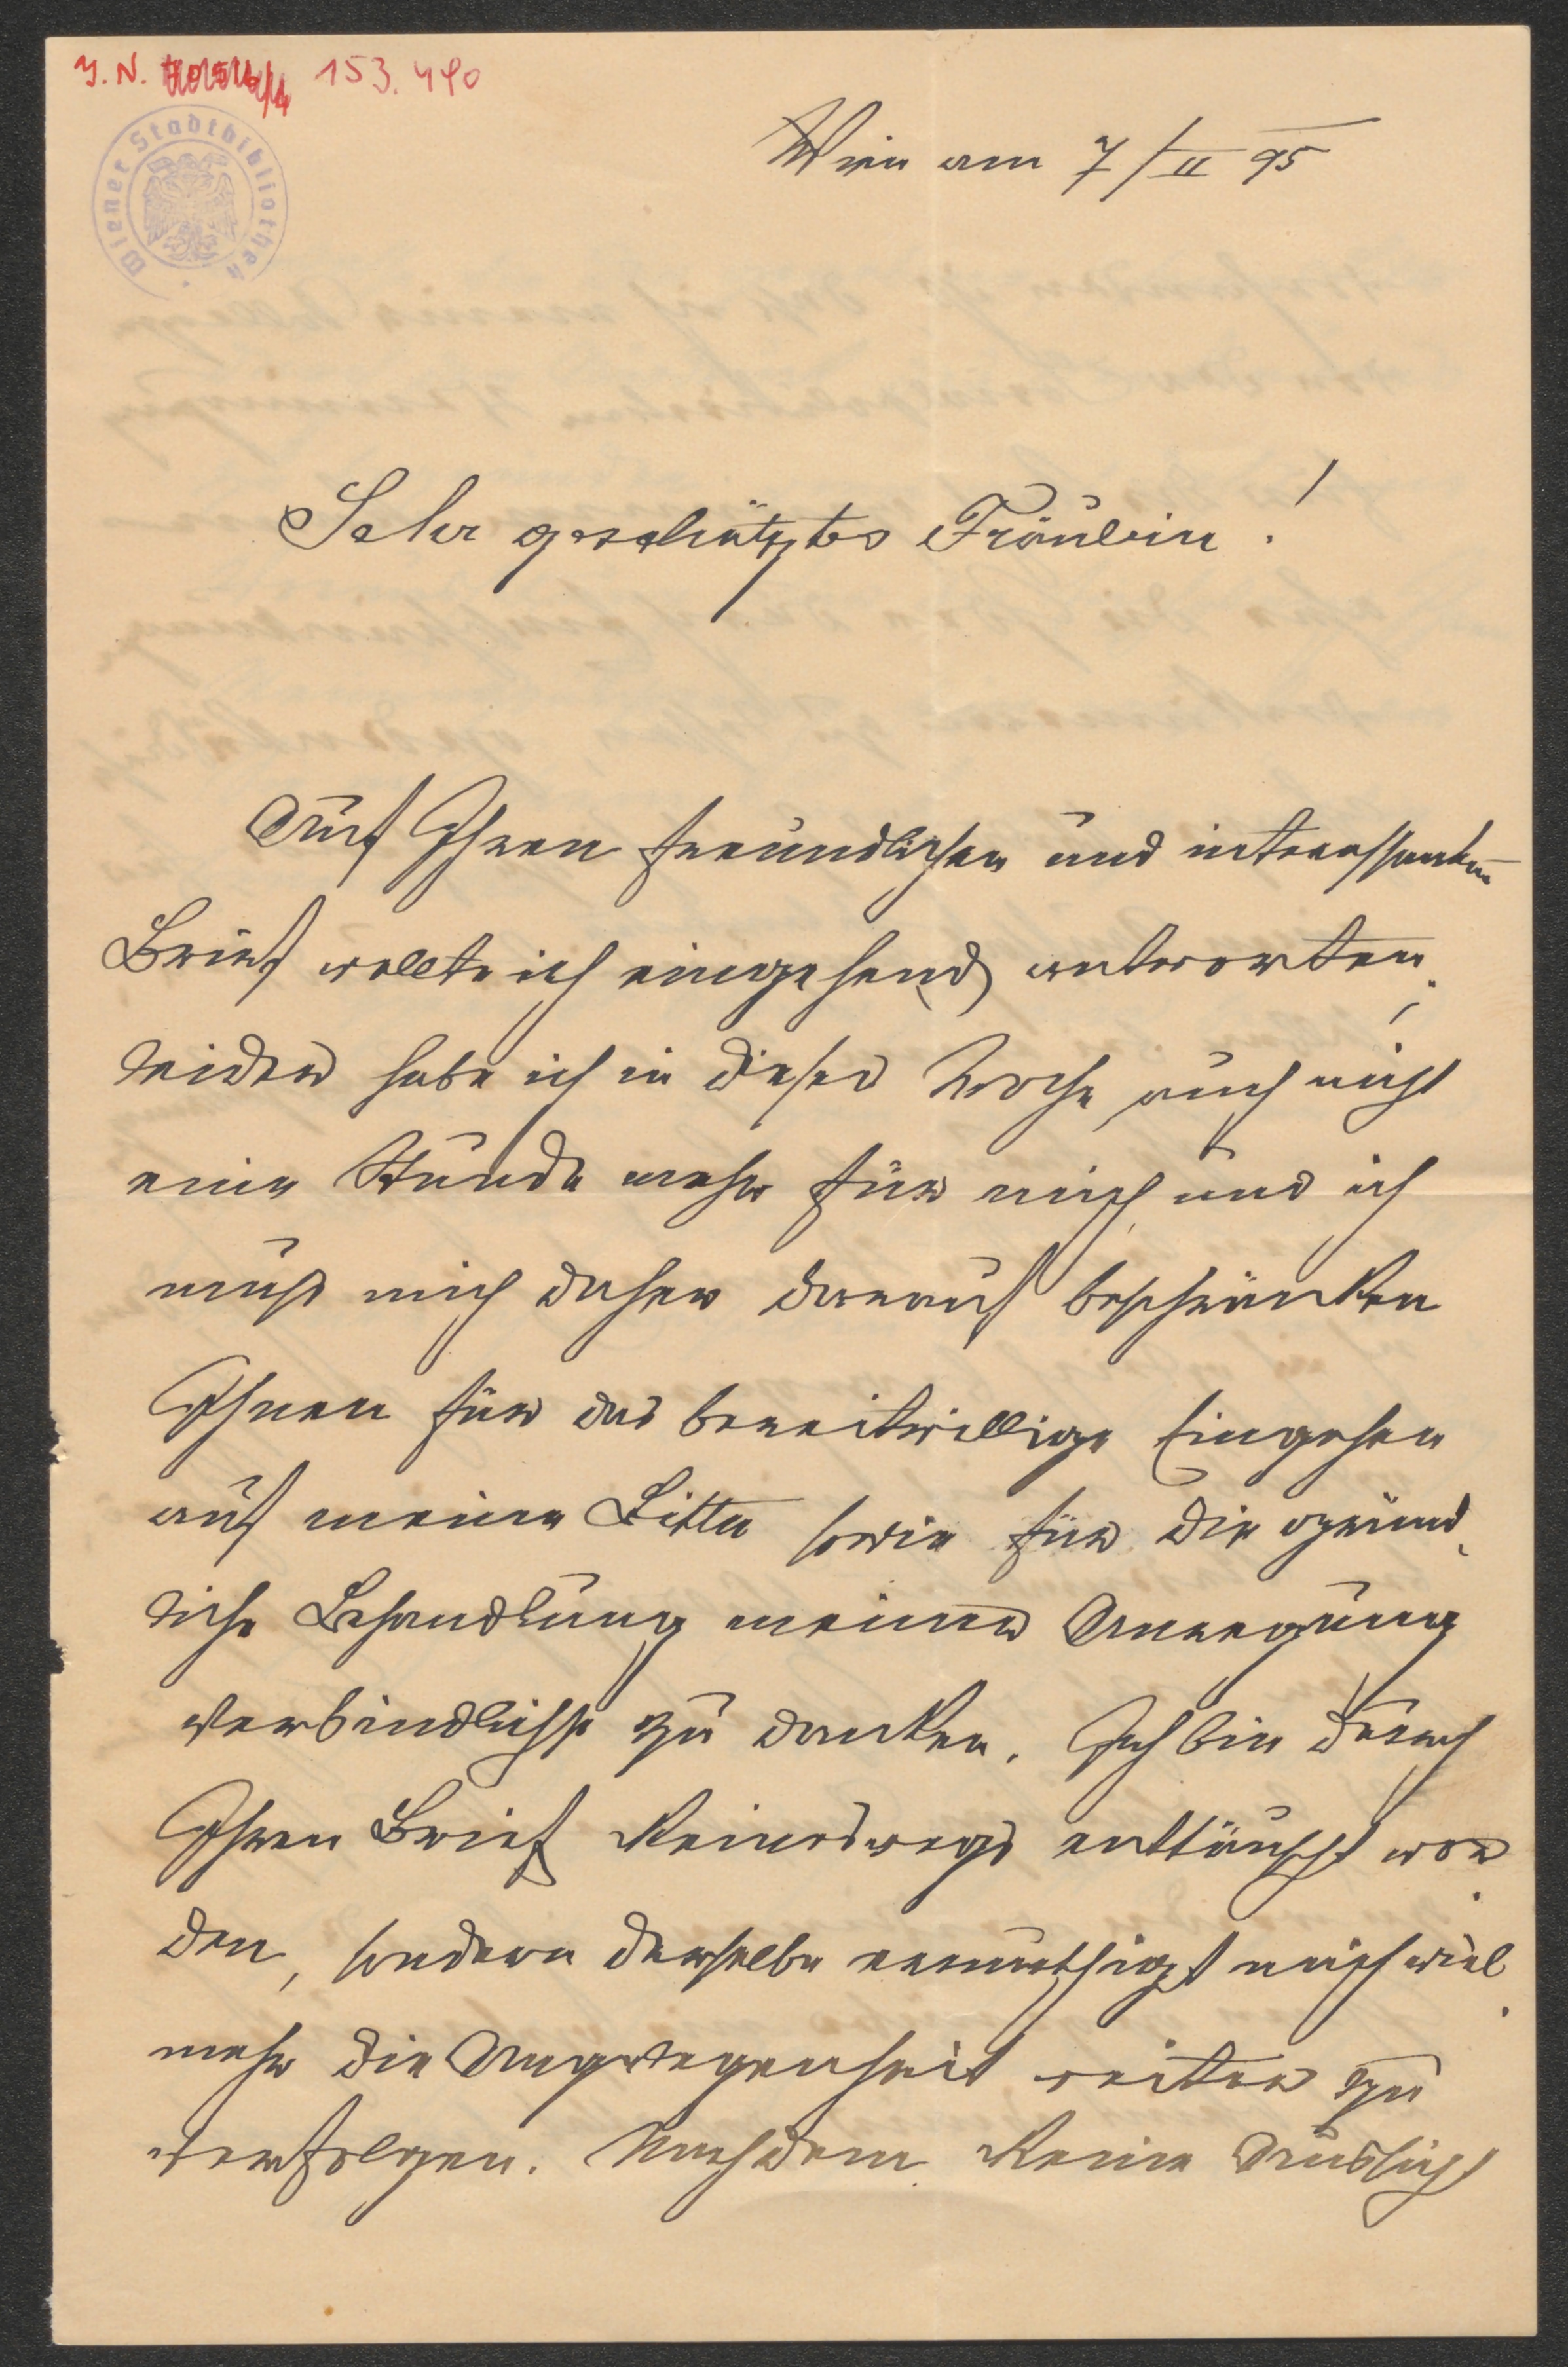 J. N. 153.490
Wiener Stadtbibliothek
Wien am 7/II 95
Sehr geschätztes Fräulein!
Auf Ihren freundlichen und interessanten
Brief wollte ich eingehend antworten;
leider habe ich in dieser Woche auch nicht
eine Stunde mehr für mich und ich
muß mich daher darauf beschränken
Ihnen für das bereitwillige Eingehen
auf meine Bitte sowie für die gründ-
liche Behandlung meiner Anregung
verbindlichst zu danken. Ich bin durch
Ihren Brief keineswegs enttäuscht wor
den, sondern derselbe ermuthigt mich viel
mehr die Angelegenheit weiter zu
verfolgen. Nachdem keine Aussicht